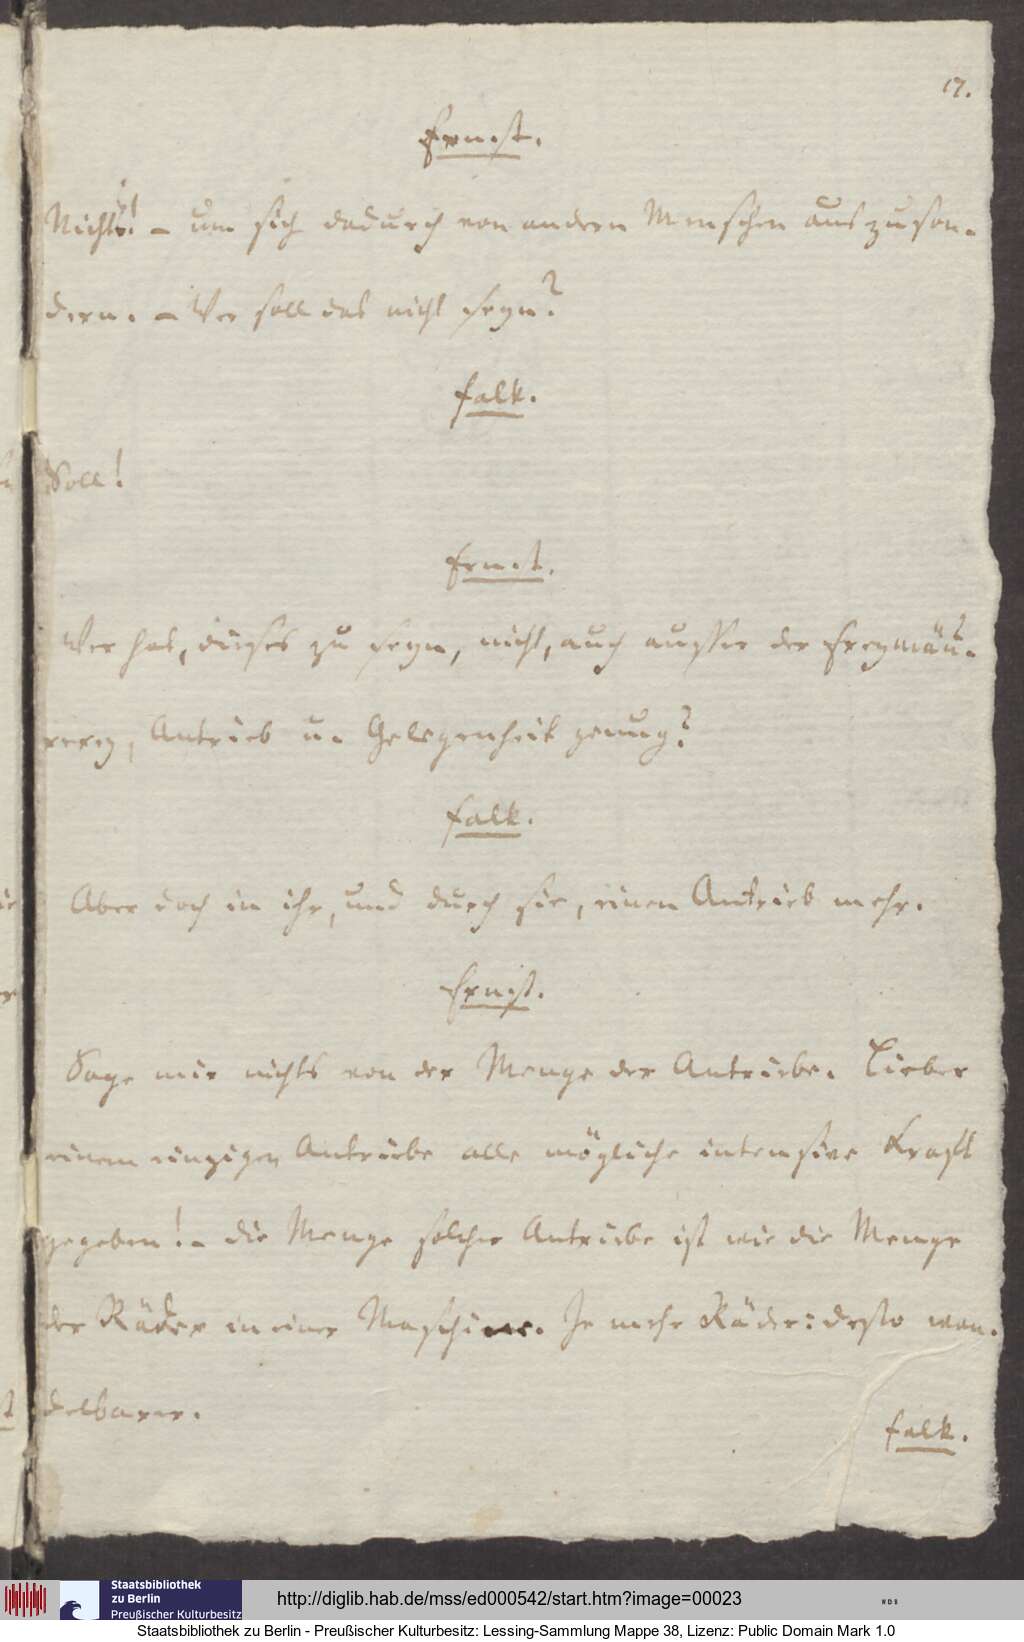 17.
Ernst.
Nichts! – um sich dadurch von andern Menschen auszuson-
dern. – Wer soll das nicht seyn?
Falk.
Soll!
Ernst.
Wer hat, dieses zu seyn, nicht, auch ausser der Freymäu-
rerey, Antrieb u. Gelegenheit genug?
Falk.
Aber doch in ihr, und durch sie, einen Antrieb mehr.
Ernst.
Sage mir nichts von der Menge der Antriebe. Lieber
einem einzigen Antriebe alle mögliche intensive Kraft
gegeben! – die Menge solcher Antriebe ist wie die Menge
der Räder in einer Maschine. Je mehr Räder: desto wan-
delbarer.
Falk.
Staatsbibliothek
zu Berlin
Preußischer Kulturbesitz
http://diglib.hab.de/mss/ed000542/start.htm?image=00023
Staatsbibliothek zu Berlin - Preußischer Kulturbesitz: Lessing-Sammlung Mappe 38, Lizenz: Public Domain Mark 1.0